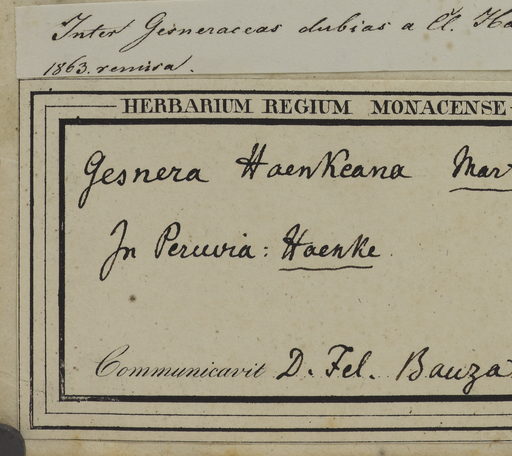 Inter Gesneraceas dubias a Cl. Ha
1863. remisa.
HERBARIUM REGIUM MONACENSE
Gesnera Haenkeana Mar
In Peruvia: Haenke
Communicavit D. Fel. Bauza